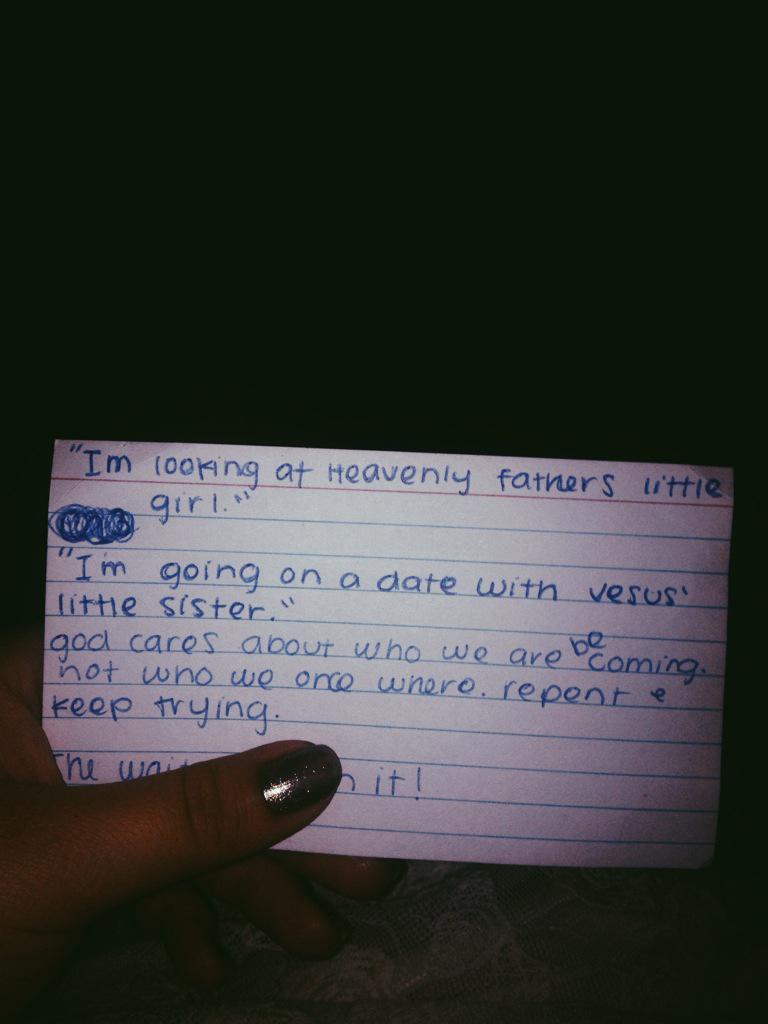 "Im looking at Heavenly fathers little
girl."
"I'm going on a date with Jesus'
little sister."
god cares about who we are becoming.
not who we once where. repent &
keep trying.
The it!